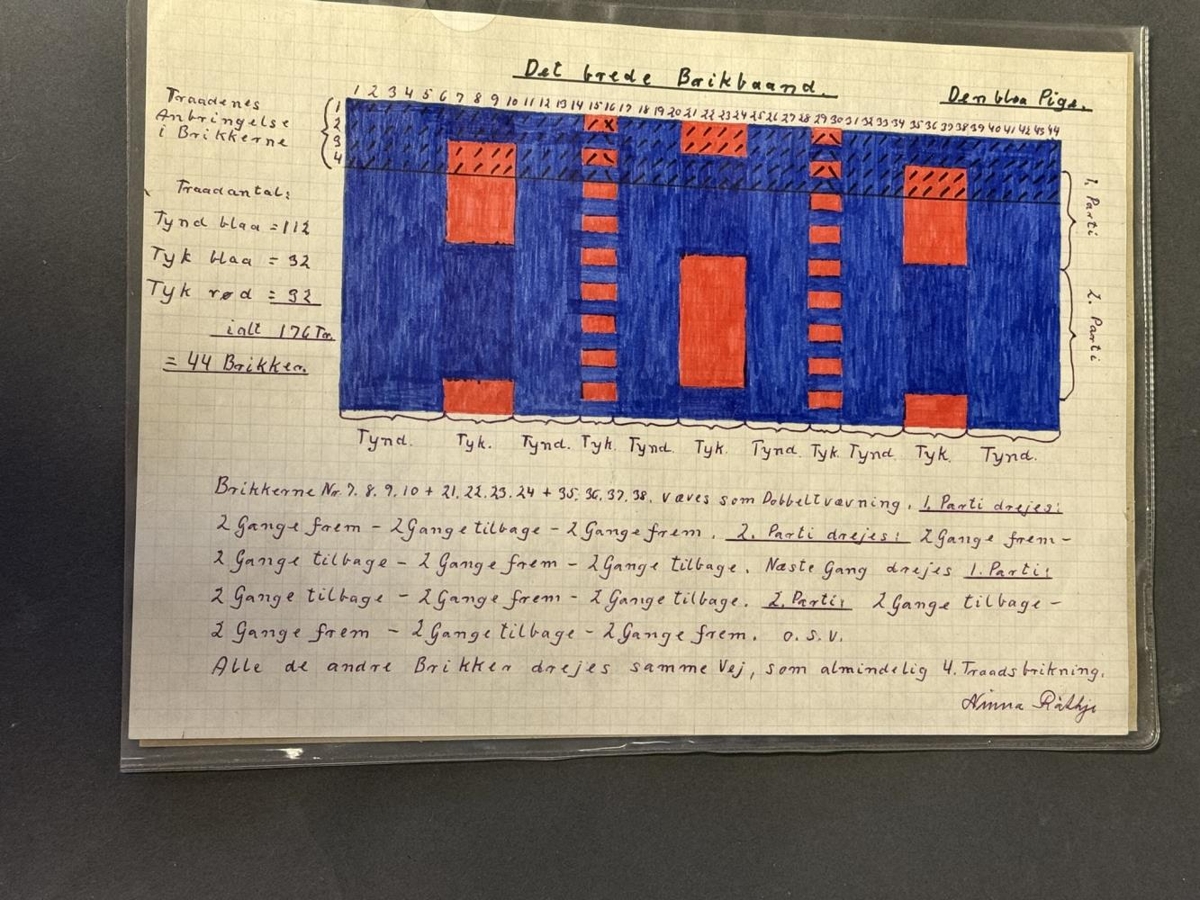 Det brede Brikbaand.
Den blaa Pige.
Traadenes
Anbringelse
i Brikkerne
1 2 3 4 5 6 7 8 9 10 11 12 13 14 15 16 17 18 19 20 21 22 23 24 25 26 27 28 29 30 31 32 33 34 35 36 37 38 39 40 41 42 43 44
1
2
3
4
Traadantal:
Tynd blaa = 112
Tyk blaa = 32
Tyk rød = 32
ialt 176 Tr.
= 44 Brikker.
1. Parti
2. Parti
Tynd. Tyk. Tynd. Tyk. Tynd. Tyk. Tynd. Tyk. Tynd. Tyk. Tynd.
Brikkerne Nr. 7. 8. 9. 10 + 21. 22. 23. 24 + 35. 36. 37. 38. væves som Dobbeltvævning. 1. Parti drejes:
2 Gange frem - 2 Gange tilbage - 2 Gange frem. 2. Parti drejes: 2 Gange frem -
2 Gange tilbage - 2 Gange frem - 2 Gange tilbage. Næste Gang drejes 1. Parti:
2 Gange tilbage - 2 Gange frem - 2 Gange tilbage. 2. Parti: 2 Gange tilbage -
2 Gange frem - 2 Gange tilbage - 2 Gange frem. o. s. v.
Alle de andre Brikker drejes samme Vej, som almindelig 4. Traadsbrikning.
Ninna Råthje